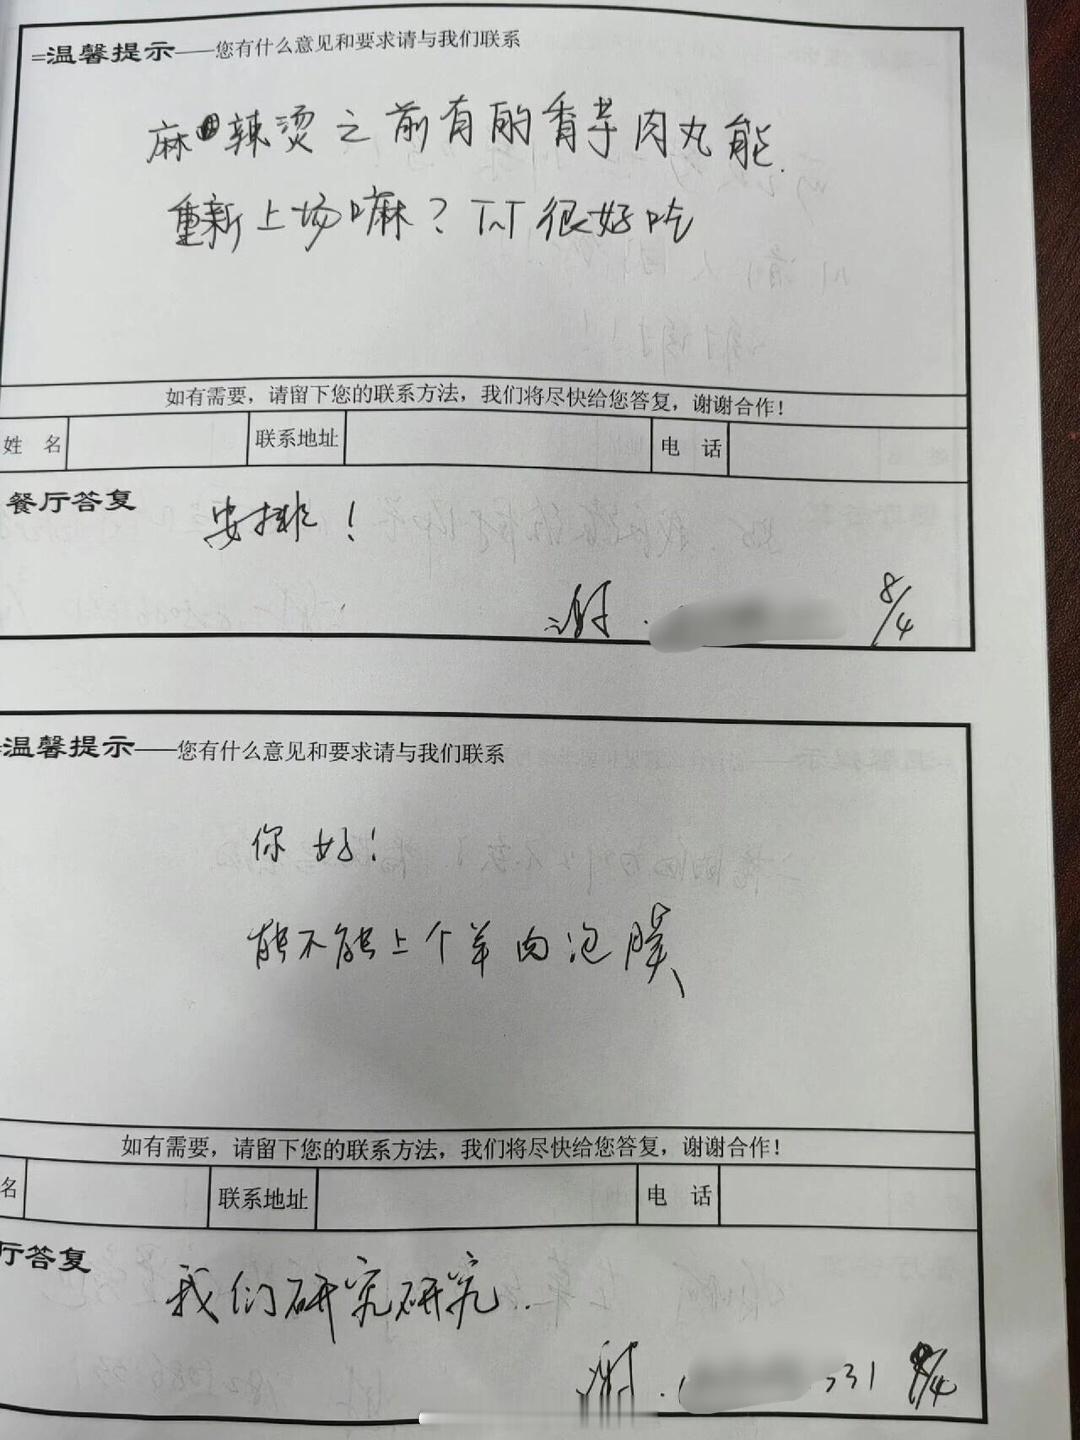 =温馨提示——您有什么意见和要求请与我们联系
麻辣烫之前有的香芋肉丸能
重新上场嘛？TnT 很好吃
如有需要，请留下您的联系方法，我们将尽快给您答复，谢谢合作！
姓 名 联系地址 电 话
餐厅答复
安排！
谢.
8/4
=温馨提示——您有什么意见和要求请与我们联系
你好！
能不能上个羊肉泡膜
如有需要，请留下您的联系方法，我们将尽快给您答复，谢谢合作！
名 联系地址 电 话
厅答复
我们研究研究.
谢. 231 8/4